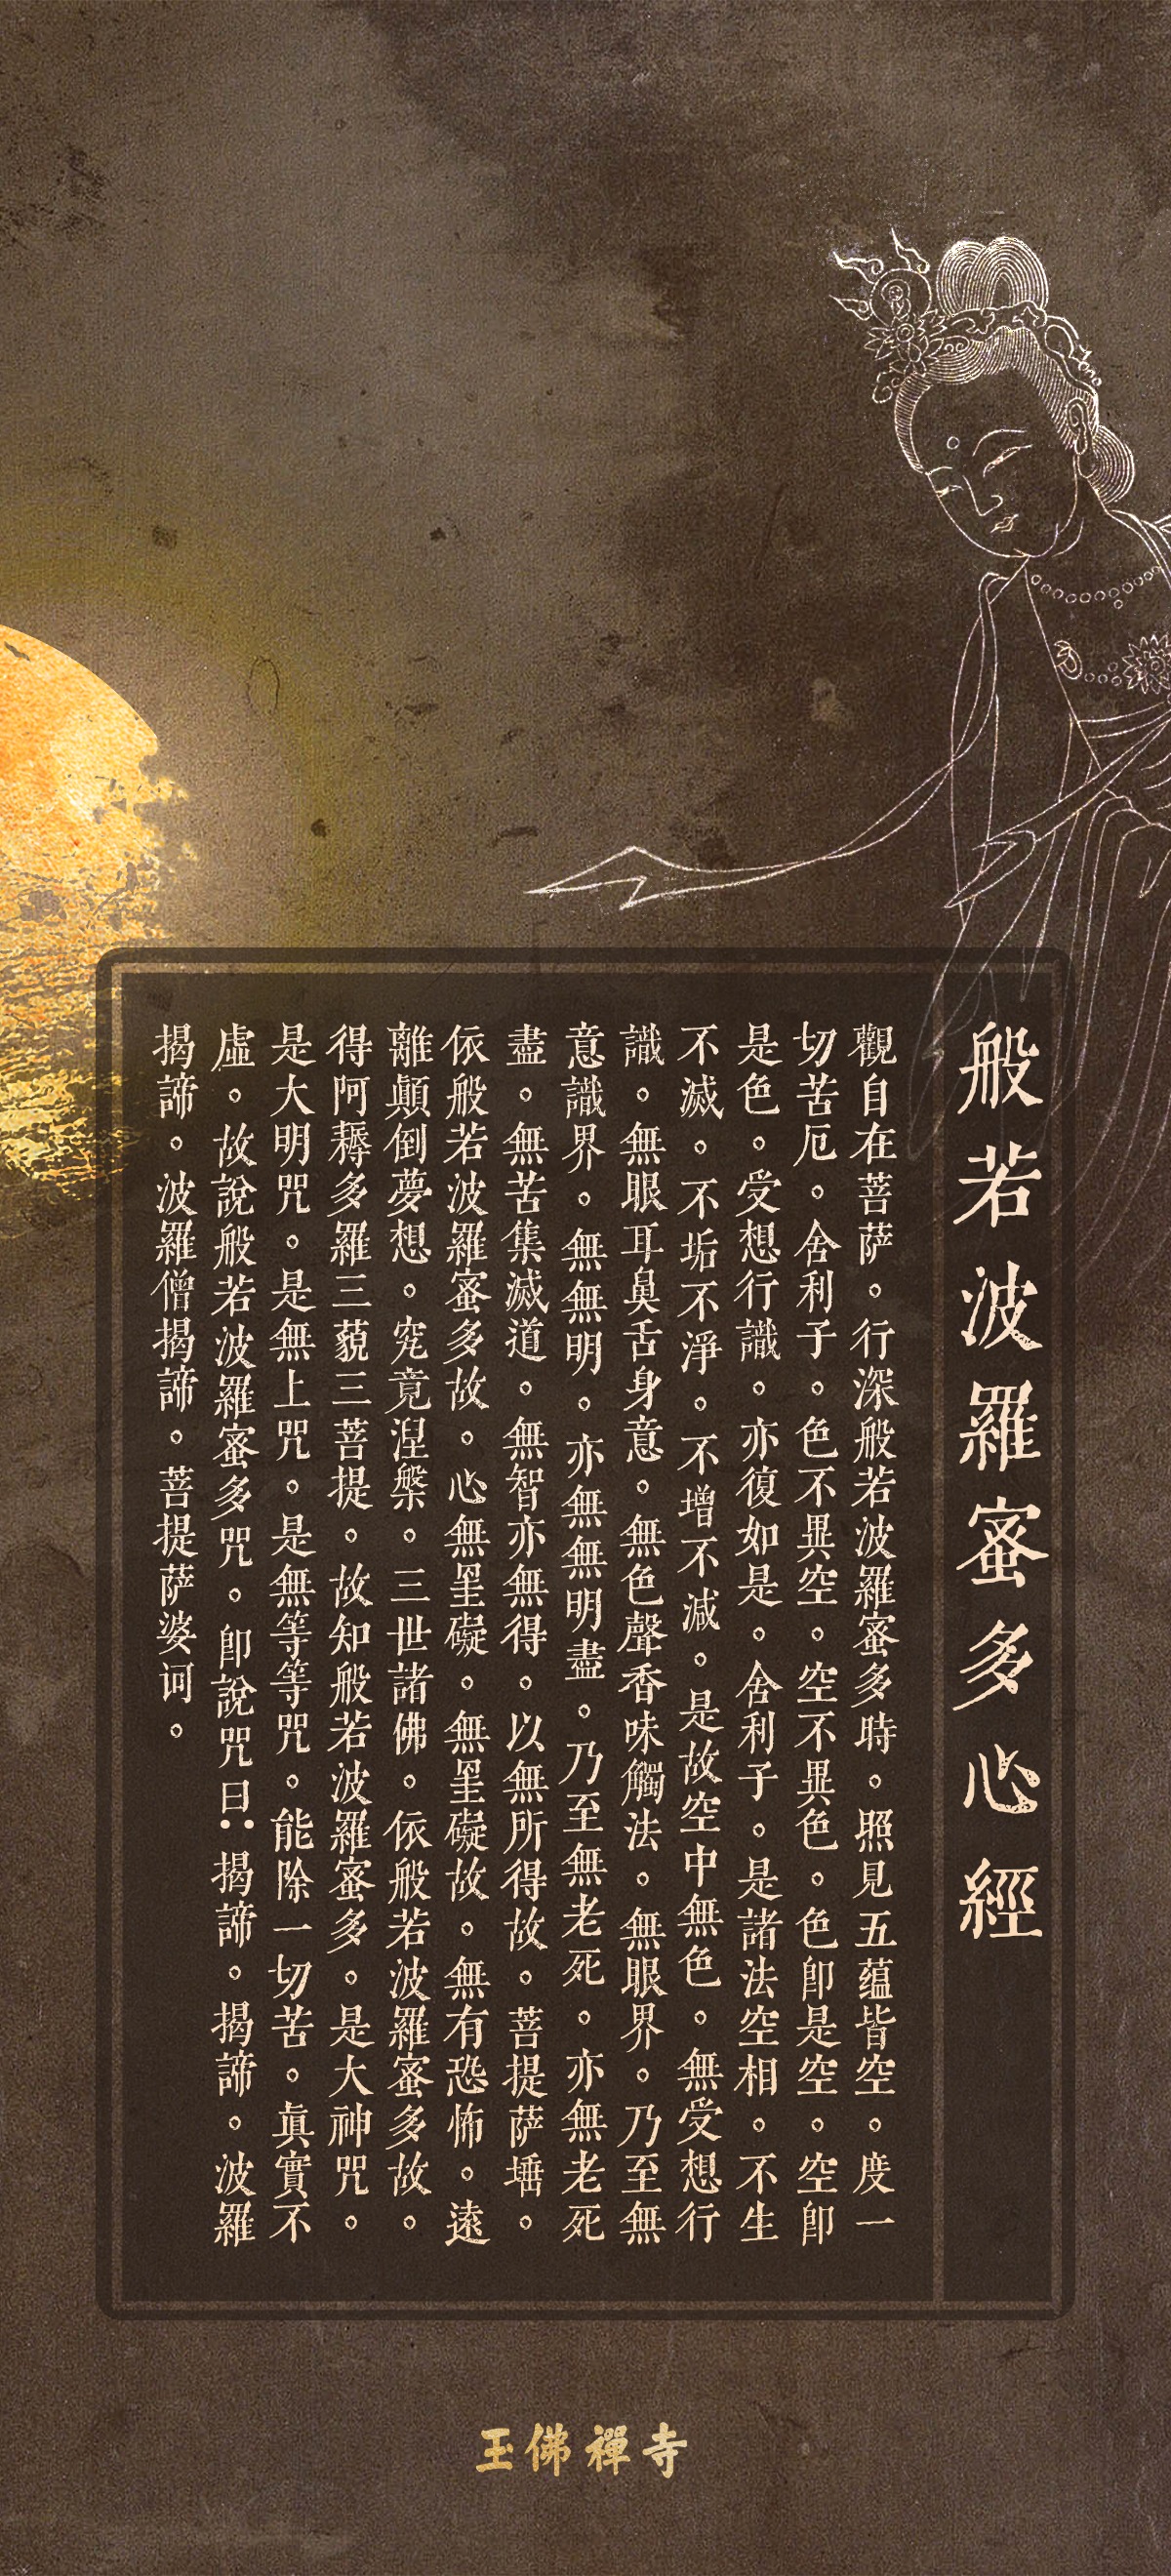 般若波羅蜜多心經
觀自在菩薩。行深般若波羅蜜多時。照見五蘊皆空。度一
切苦厄。舍利子。色不異空。空不異色。色卽是空。空卽
是色。受想行識。亦復如是。舍利子。是諸法空相。不生
不滅。不垢不淨。不增不減。是故空中無色。無受想行
識。無眼耳鼻舌身意。無色聲香味觸法。無眼界。乃至無
意識界。無無明。亦無無明盡。乃至無老死。亦無老死
盡。無苦集滅道。無智亦無得。以無所得故。菩提薩埵。
依般若波羅蜜多故。心無罣礙。無罣礙故。無有恐怖。遠
離顛倒夢想。究竟涅槃。三世諸佛。依般若波羅蜜多故。
得阿耨多羅三藐三菩提。故知般若波羅蜜多。是大神咒。
是大明咒。是無上咒。是無等等咒。能除一切苦。眞實不
虛。故說般若波羅蜜多咒。卽說咒曰：揭諦。揭諦。波羅
揭諦。波羅僧揭諦。菩提薩婆诃。
玉佛禪寺